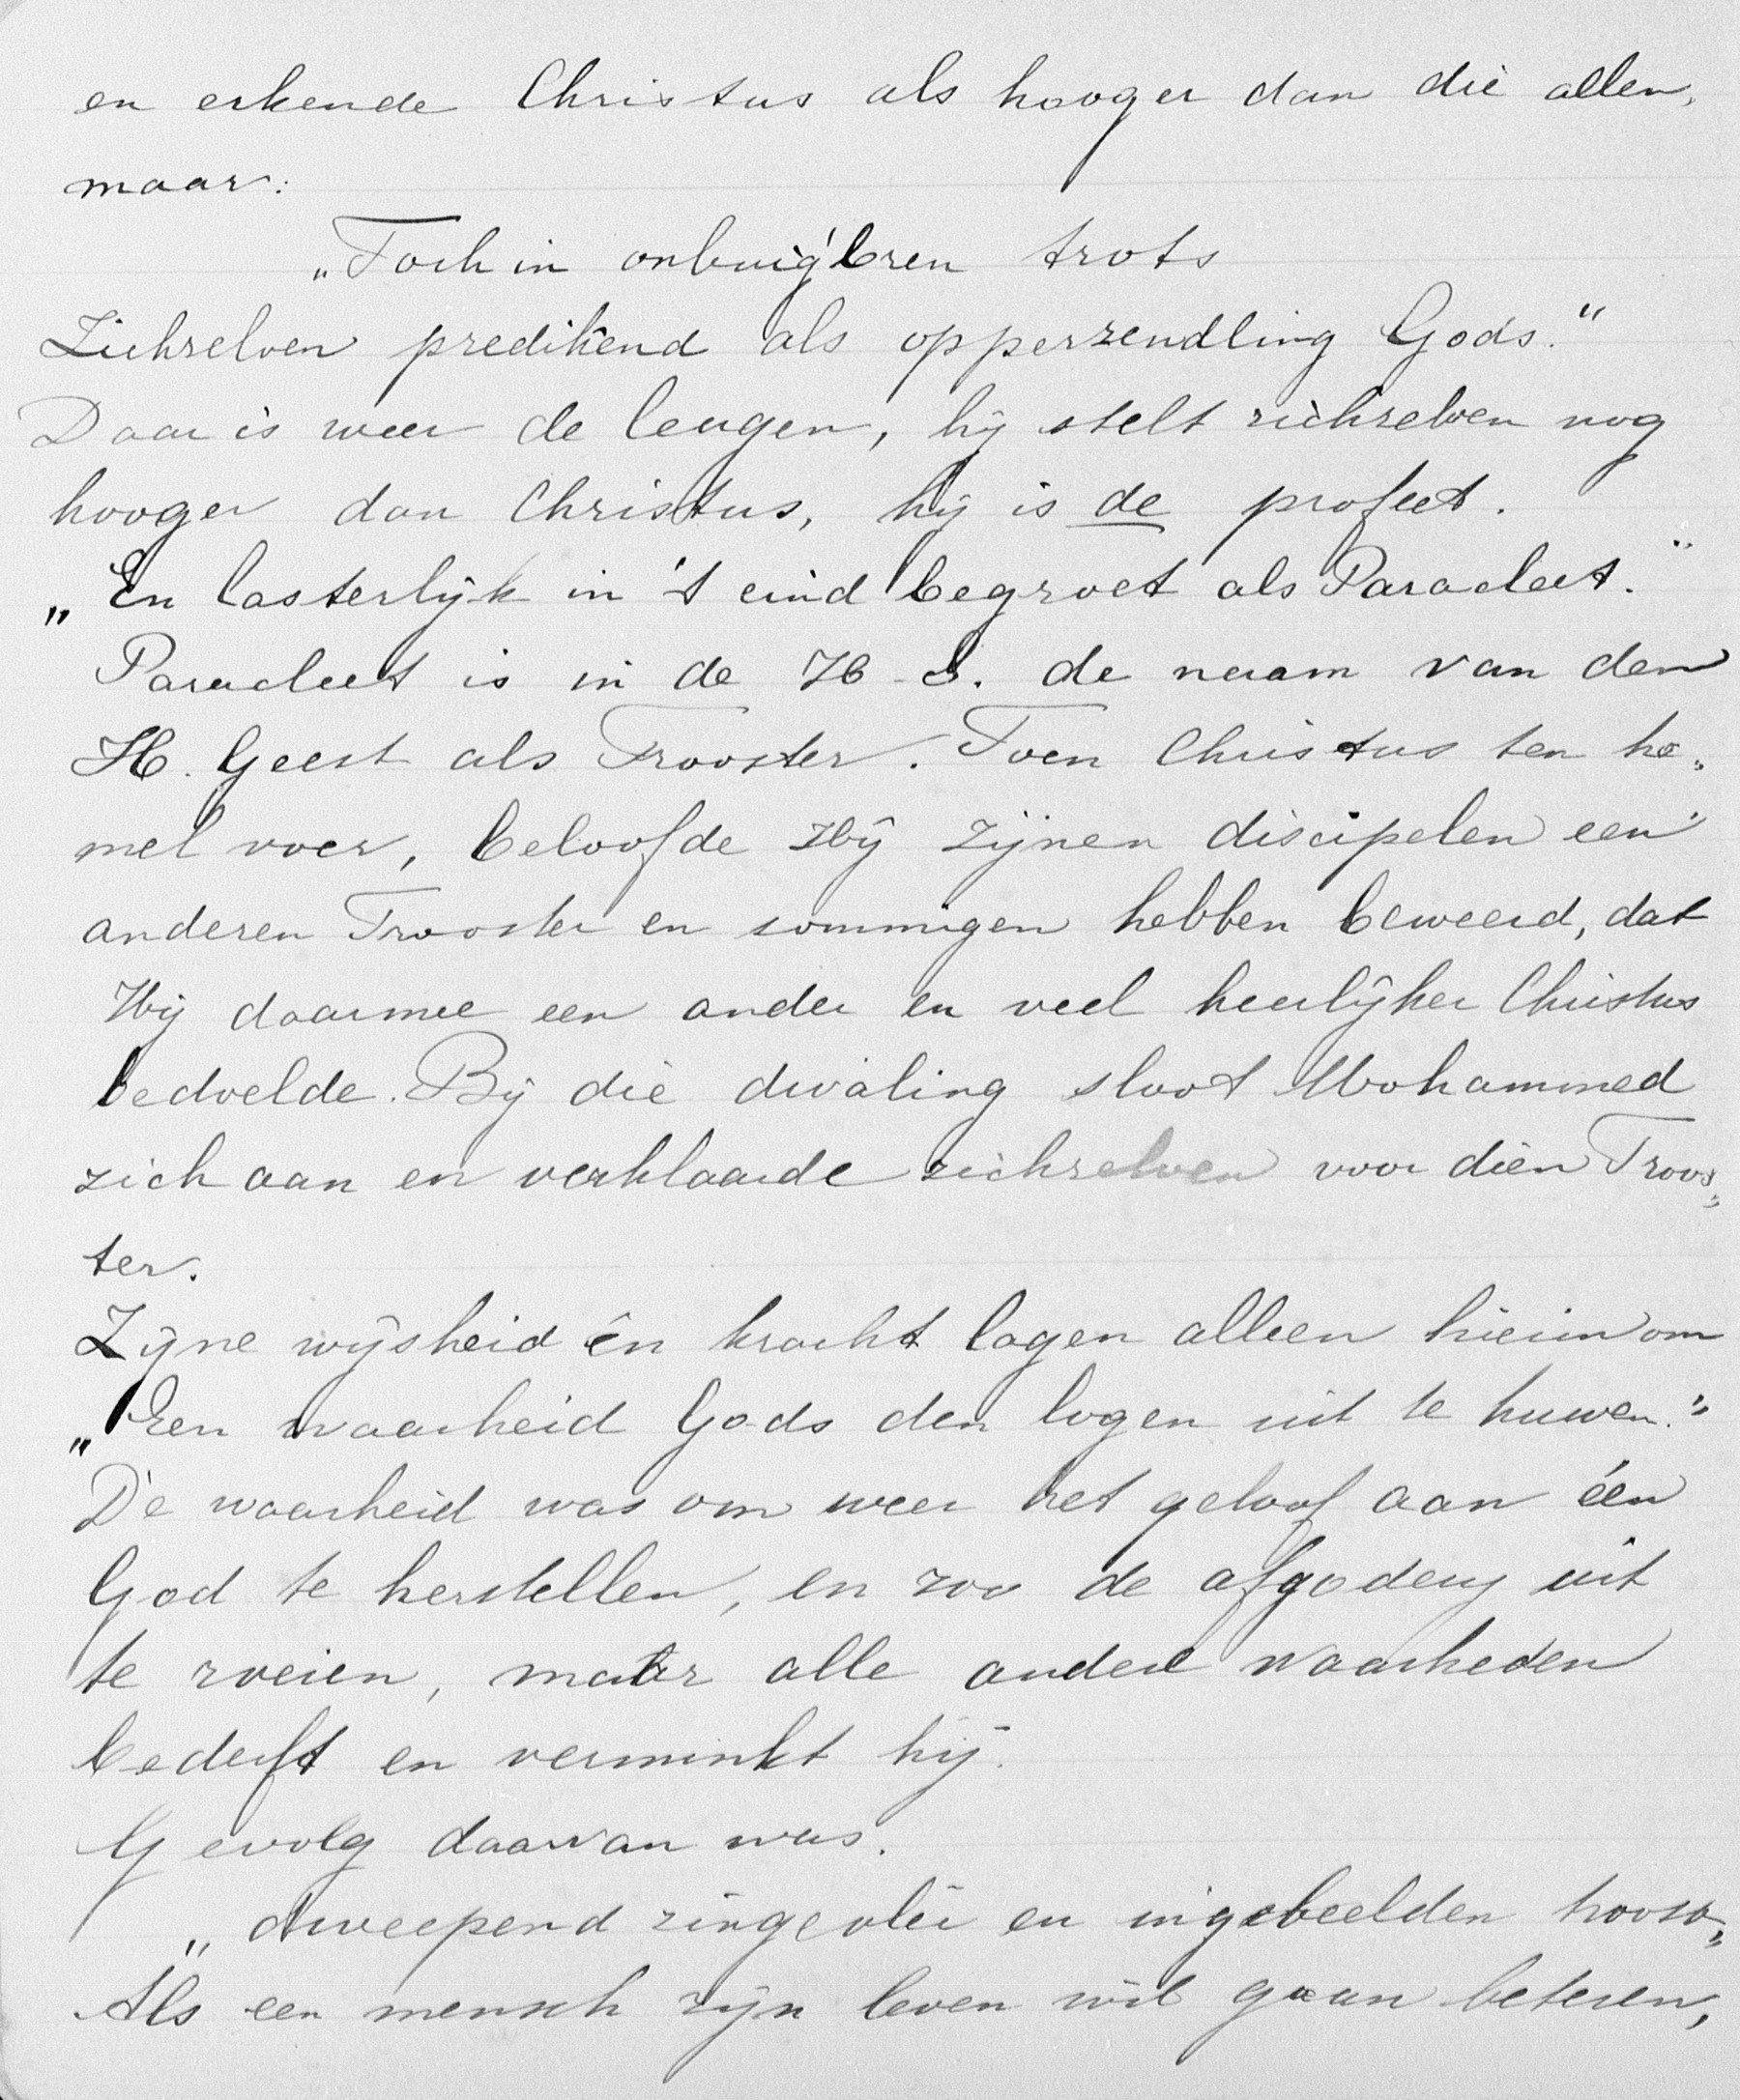 en erkende Christus als hooger dan die allen,
maar:
„Toch in onbuig'bren trots
Zichzelven predikend als opperzendling Gods."
Daar is weer de leugen, hij stelt zichzelven nog
hooger dan Christus, hij is de profeet.
„En lasterlijk in 't eind begroet als Paracleet."
Paracleet is in de H. S. de naam van den
H. Geest als Trooster. Toen Christus ten he„
mel voer, beloofde Hij zijnen discipelen een
anderen Trooster en sommigen hebben beweerd, dat
Hij daarmee een ander en veel heerlijker Christus
bedoelde. Bij die dwaling sloot Mohammed
zich aan en verklaarde zichzelven voor dien Troos„
ter.
Zijne wijsheid én kracht lagen alleen hierin om
„Een waarheid Gods den logen uit te huwen."
De waarheid was om weer het geloof aan één
God te herstellen, en zoo de afgoderij uit
te roeien, maar alle andere waarheden
bederft en verminkt hij.
Gevolg daarvan was.
„dweepend zingevlei en ingebeelden hoos„
Als een mensch zijn leven wil gaan beteren,